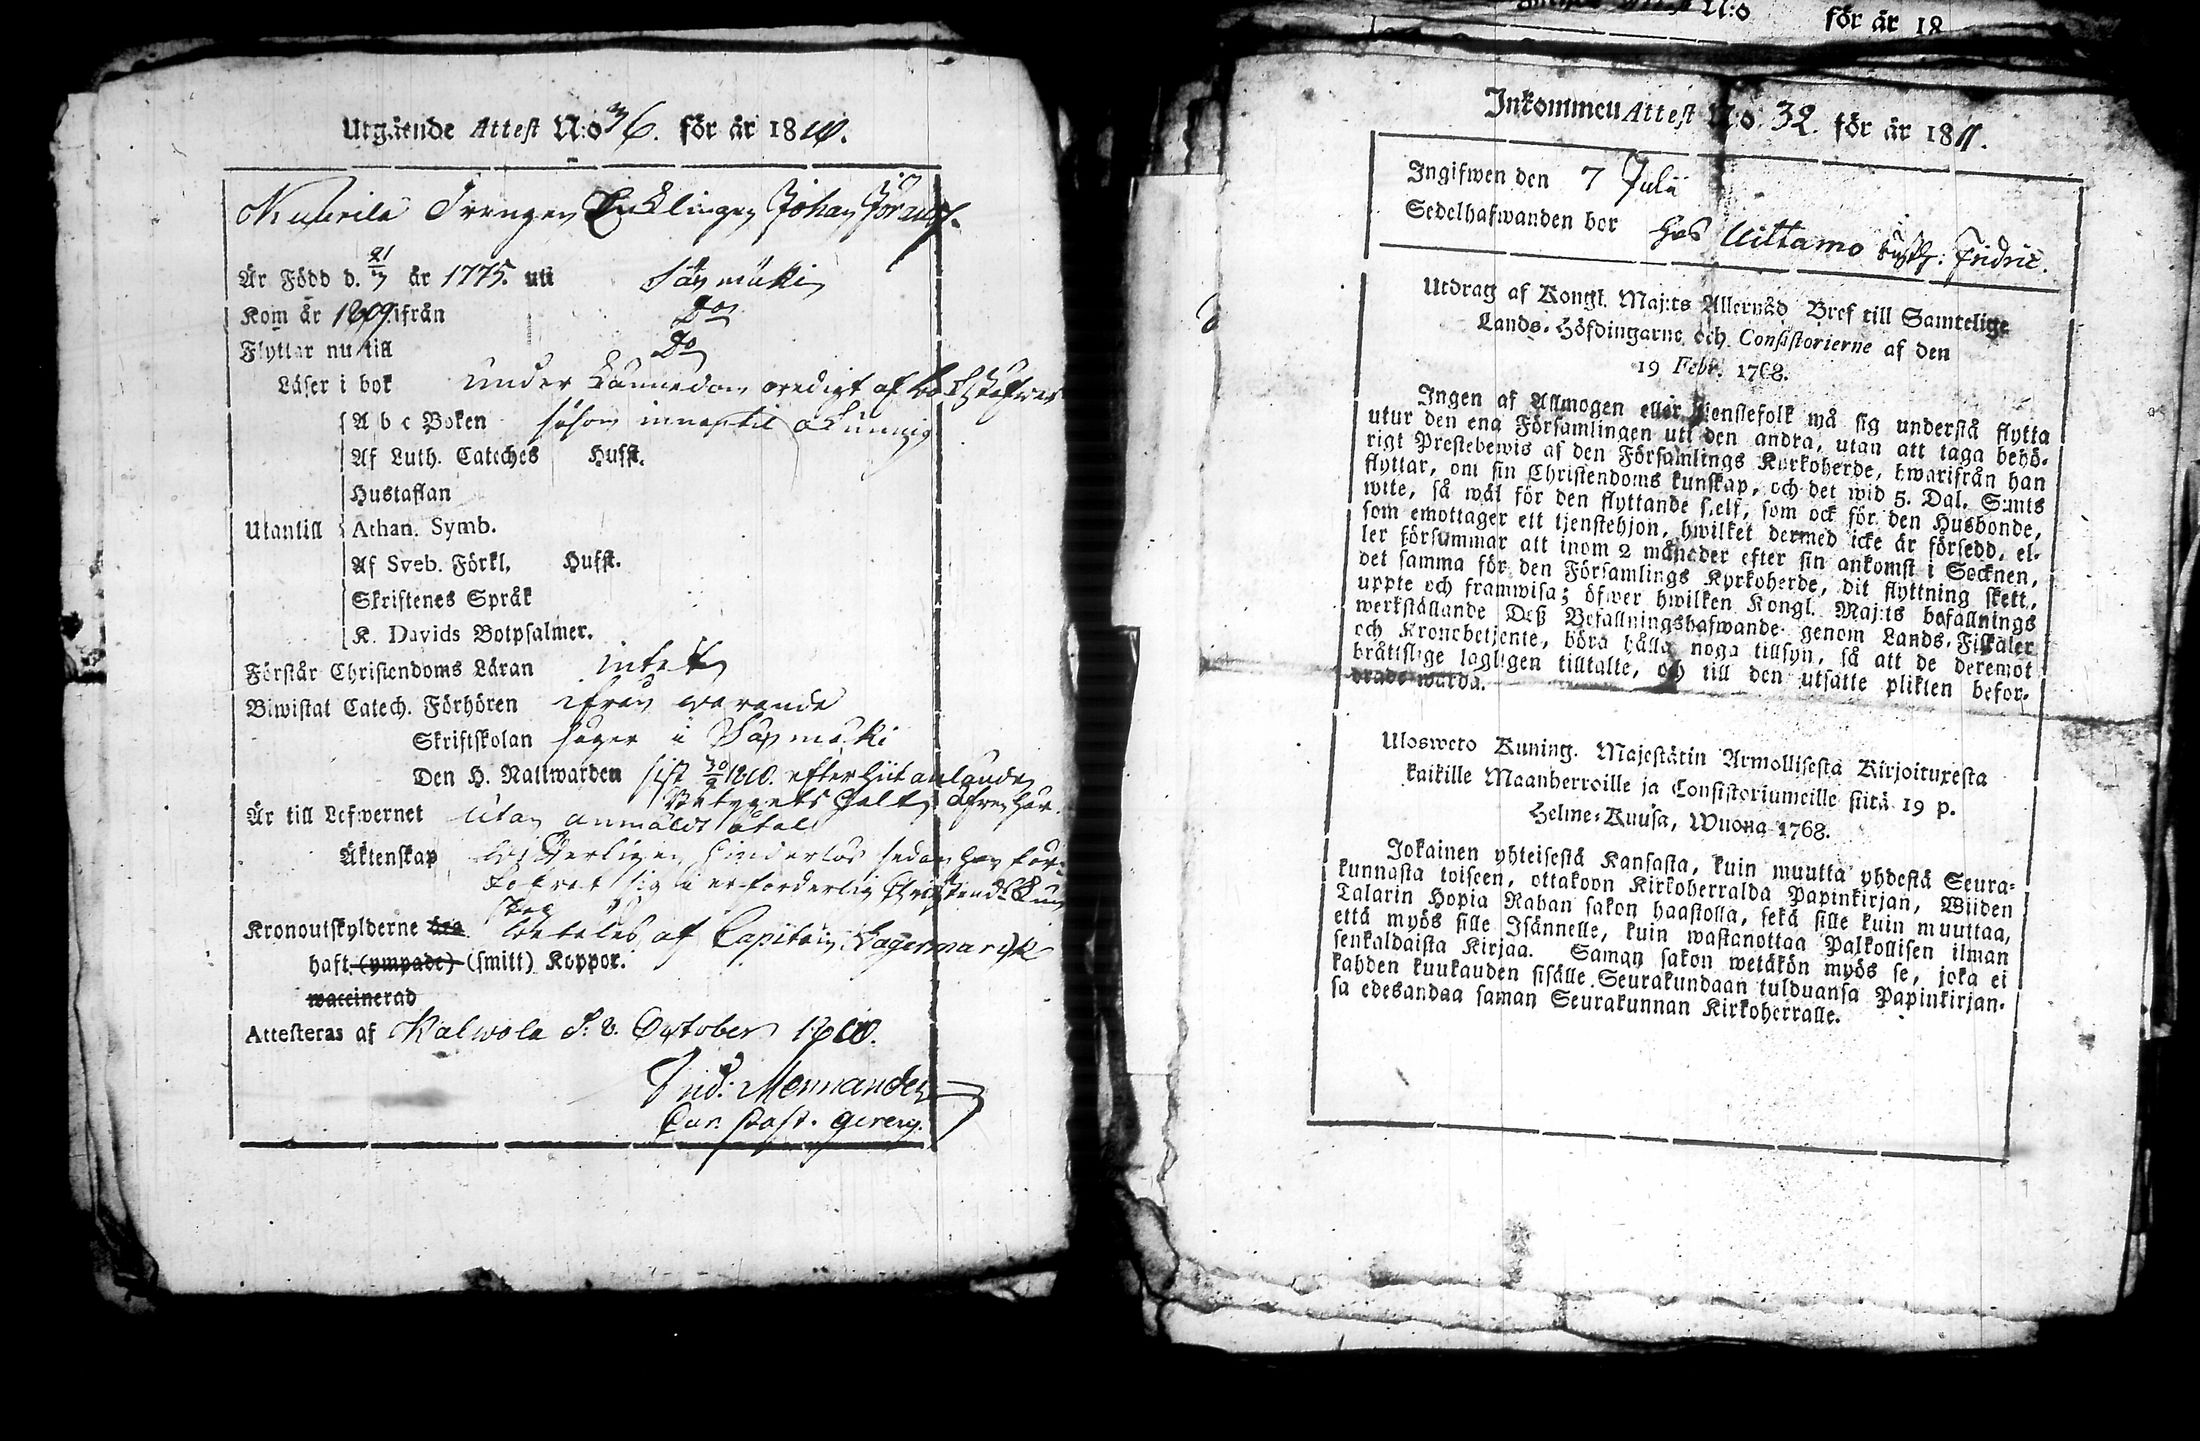 Utgående Attest N:o 36. för år 1810.
Drengen Johan
Är Född d. 21/7 år 1775. uti Sääxmäki
Kom år 1809 ifrån Do
Flyttar nu till Do
Läser i bok under af
A b c Boken såsom innantil okunnig
Af Luth. Cateches Husst.
Hustaflan
Utantill Athan. Symb.
Af Sveb. Förkl. Husst.
Skriftenes Språk
K. Davids Botpsalmer.
Förstår Christendoms Läran intet
Biwistat Catech. Förhören ifrån warande
Skriftskolan säger i Sääxmäki
Den H. Nattwarden sist 30/9 1810. efter hit anländ
Betygets
Är till Lefwernet utan anmäldt åtal
Äktenskap hinderlös sedan han för-
sig i erforderlig Christend:s Kun
skap
Kronoutskylderne äro betales af Capitain Lagermarck
haft (ympade) (smitt) Koppor.
waccinerad
Attesteras af Kalwola d. 8. October 1810.
Frid: Mennander
För är 18
Inkommen Attest N:o 32. för år 1811.
Ingifwen den 7 Julii
Sedelhafwanden bor hos Uittamo Fridric.
Utdrag af Kongl. Maj:ts Allernåd Bref till Samtelige
Lands-Höfdingarne och Consistorierne af den
19 Febr. 1768.
Ingen af Allmogen eller tjenstefolk må sig understå flytta
utur den ena Församlingen uti den andra, utan att taga behö-
rigt Prestebewis af den Församlings Kyrkoherde, hwarifrån han
flyttar, om sin Christendoms kunskap, och det wid 5. Dal. S:mts
wite, så wäl för den flyttande sjelf, som ock för den Husbonde,
som emottager ett tjenstehjon, hwilket dermed icke är försedd, el-
ler försummar att inom 2 månader efter sin ankomst i Socknen,
det samma för den Församlings Kyrkoherde, dit flyttning skett,
uppte och framwisa; öfwer hwilken Kongl. Maj:ts befallnings
werkställande Deß Befallningshafwande genom Lands-Fiskaler
och Kronobetjente, böra hålla noga tillsyn, så att de deremot
bråttslige lagligen tilltalte, och till den utsatte plikten befor-
drade warda.
Ulosweto Kuning. Majestätin Armollisesta Kirjoituxesta
kaikille Maanherroille ja Consistoriumeille siitä 19 p.
Helme-Kuusa, Wuonna 1768.
Jokainen yhteisestä Kansasta, kuin muutta yhdestä Seura-
kunnasta toiseen, ottakoon Kirkoherralda Papinkirjan, Wiiden
Talarin Hopia Rahan sakon haastolla, sekä sille kuin muuttaa,
että myös sille Isännelle, kuin wastanottaa Palkollisen ilman
senkaldaista Kirjaa. Saman sakon wetäkön myös se, joka ei
kahden kuukauden sisälle Seurakundaan tulduansa Papinkirjan-
sa edesandaa saman Seurakunnan Kirkoherralle.